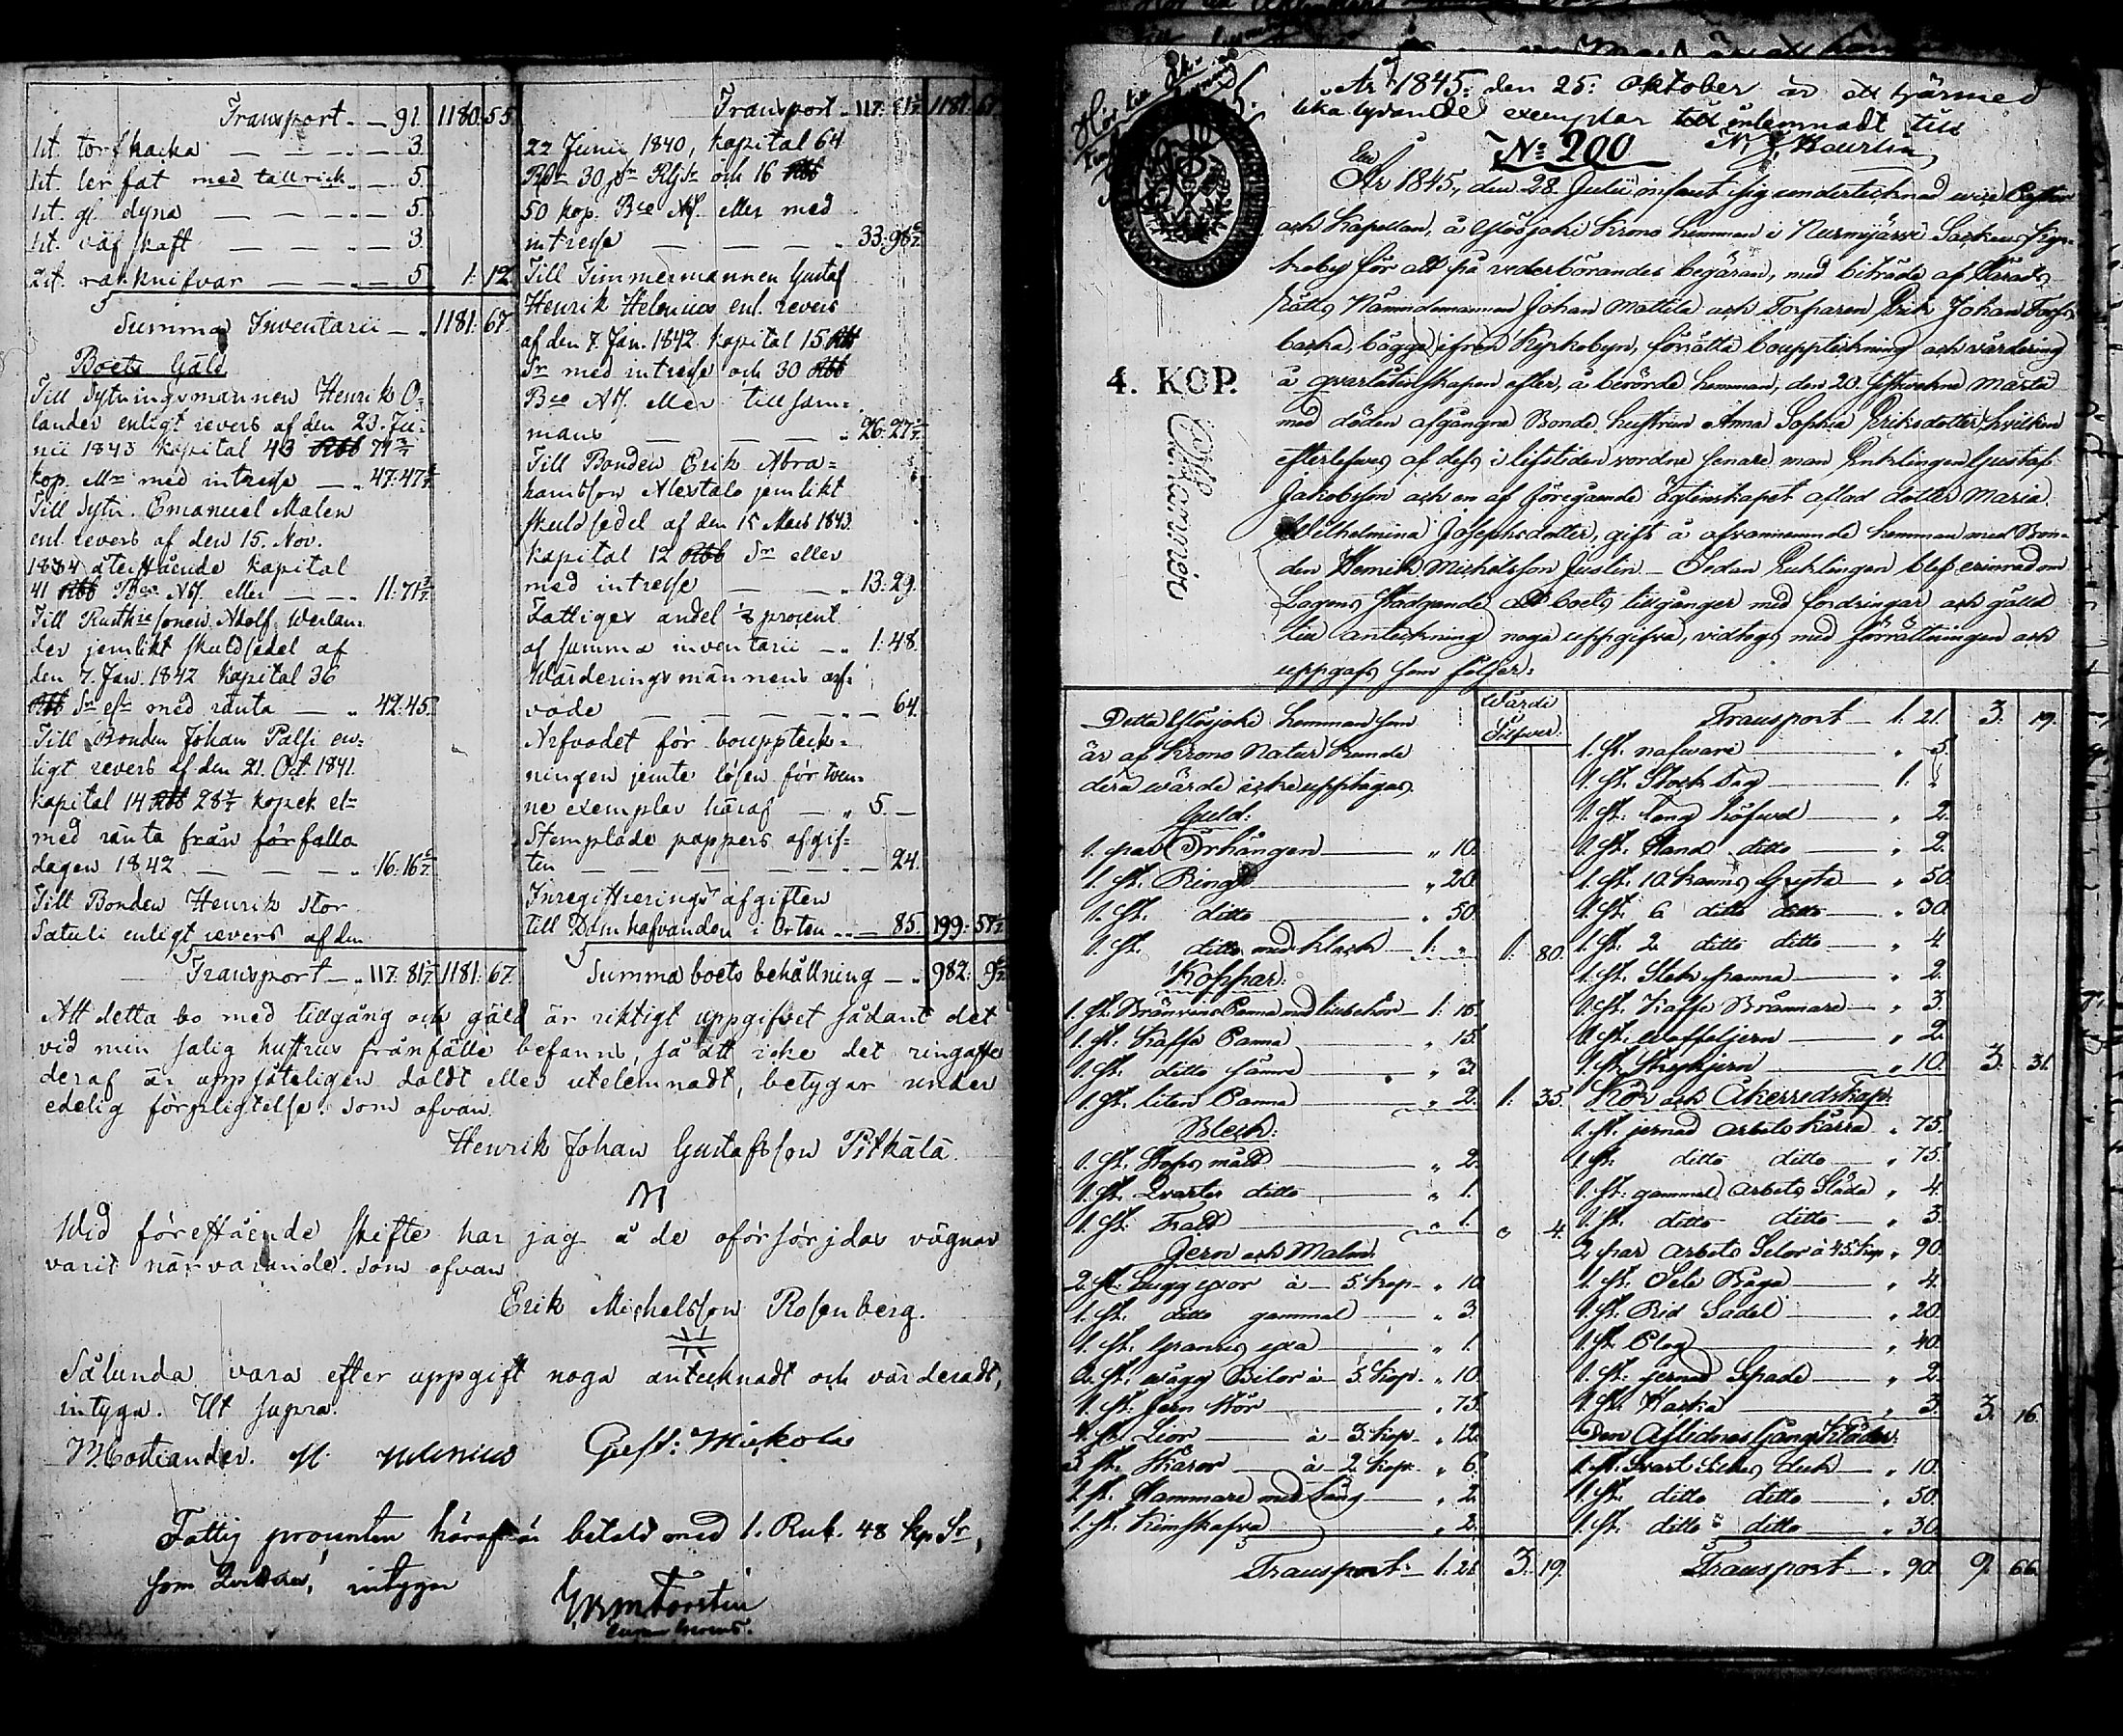 Transport - - 91. 1180: 55
1 st. torfhacka — — — 3.
1 st. lerfat med tallrick — 5.
1 st. gl. dyna — — — 5.
1 st. väfskaft — — — 3.
2 st. rakknifvar — — — 5. 1: 12.
Summa Inventarii — „ 1181: 67.
Boets Gäld
Till Sytningsmannen Henrik O-
lander enligt revers af den 23. Ju-
nii 1843 kapital 43 Rbl 71 3/7
kop. med intresse — „ 47: 47
Till Sytn. Emanuel Malen
enl. revers af den 15. Nov.
1834 återstående kapital
41 Rbl Bco Ass. eller — — „ 11: 71 3/7
Till Adolf Werlan-
der jemlikt skuldsedel af
den 7. Jan. 1842 kapital 36
Rbl Sr med ränta — „ 42: 45.
Till Bonden Johan Palsi en-
ligt revers af den 21. Oct. 1841.
kapital 14 Rbl 28 4/7 kopek
med ränta från förfallo
dagen 1842 — — — „ 16: 16
Till Bonden Henrik Stor
Satuli enligt revers af den
Transport — „ 117: 81 1181: 67.
Transport „ 117: 81 1181: 67
22 Junii 1840, kapital 64
30 och 16 Rbl
50 kop. Bco Ass. eller med
intresse — — — „ 33: 98
Till Timmermannen Gustaf
Henrik Helenius enl. revers
af den 7. Jan. 1842 kapital 15 Rbl
Sr med intresse och 30 Rbl
Bco Ass. eller tillsam-
mans — — — „ 26: 27
Till Bonden Erik Abra-
hamsson Alestalo jemlikt
skuldsedel af den 15 Mars 1843.
kapital 12 Rbl Sr eller
med intresse — — „ 13: 29.
Fattiges andel 1/8 procent
af summa inventarii — „ 1: 48.
Wärderingsmännens arf-
vode — — — — — 64.
Arfvodet för bouppteck-
ningen jemte lösen för tven-
ne exemplar häraf — „ 5. —
Stemplade pappers afgif-
ten — — — — — 24.
Inregistrerings afgiften
till Domhafvanden i Orten — 85. 199: 57
Summa boets behållning — „ 982: 9
Att detta bo med tillgång och gäld är riktigt uppgifvet sådant det
vid min salig hustrus frånfälle befanns, så att icke det ringaste
deraf är uppsåteligen doldt eller utelemnadt, betygar under
edelig förpligtelse. Som ofvan
Henrik Johan Gustafsson Pitkälä
Wid föreståendе skifte har jag å de oförsörjdas vägnar
varit närvarande. Som ofvan
Erik Michelsson Rosenberg.
Sålunda vara efter uppgift noga antecknadt och värderadt,
intyga. Ut supra.
Gust: Mickola
Fattig procenten häraf är betald med 1. Rub. 48 kp Sr,
som intygar
År 1845: den 25: Oktober är ett härmed
lika lydande exemplar till inlemnadt till
No 200
4. KOP.
År 1845, den 28 Julii infant sig undertecknad vice Pastor
och Kapellan, å Ylösjoki Krono hemman i Nurmijärvi Socken Kyr-
koby för att på vederbörandes begäran, med biträde af Härads
Rätts Nämndemannen Johan Mattila och Torparen Erik Johan Torf-
backa, bägge ifrån Kyrkobyn, förrätta bouppteckning och värdering
å qvarlåtenskapen efter, å berörde hemman, den 20. sistvekne Martii
med döden afgångna Bonde hustrun Anna Sophia Eriksdotter, hvilken
efterlefves af dess i lifstiden vordne senare man Enklingen Gustaf
Jakobsson och en af föregående äktenskapet aflad dotter Maria
Wilhelmina Josephsdotter, gift å ofvannämnde hemman med Bon-
den Henrik Michelsson Juslin — Sedan Enklingen blef erinrad om
Lagens stadgande att boets tillgånger med fordringar och gäld
till anteckning noga uppgifva, vidtogs med förrättningen och
uppgafs som följer:
Wärde
Silfver.
Detta Ylösjoki hemman som
är af Krono Natur kunde
dera wärde icke upptagas.
Guld:
1. par Örhängen — „ 10.
1. st. Ring — „ 20.
1. st. ditto — „ 50.
1. st. ditto med Klack — 1: „ 1: 80.
Koppar:
1. st. Bränvins Panna med tillbehör — 1: 15.
1. st. Kaffe Panna — „ 15.
1. st. ditto sämre — „ 3.
1. st. liten Panna — „ 2. 1: 35.
Bleck:
1. st. Stops mått — „ 2.
1. st. Qvarter ditto — „ 1.
1. st. Tratt — „ 1. „ 4.
Jern och Malm:
2. st. huggyxor à 5 kop. „ 10
1. st. ditto gammal — „ 3.
1. st. yxa — „ 1.
2. st. vägg Bilor à 5 kop. „ 10.
1. st. Jern Stör — „ 75.
4. st. Lior — à 3 kop. „ 12.
3. st. Skäror — à 2 kop. „ 6.
1. st. Hammare med tång — „ 2.
1. st. Kimskafva — „ 2.
Transport: 1: 21 3. 19.
Transport — 1. 21. 3. 19.
1. st. nafware — „ 5.
1. st. Stock Såg — 1: „
1. st. Lång höfvel — „ 2.
1. st. Hand ditto — „ 2.
1. st. 10. kanns Gryta — „ 50.
1. st. 6 ditto ditto — „ 30.
1. st. 2 ditto ditto — „ 4.
1. st. Stekpanna — „ 2.
1. st. Kaffe Brännare — „ 3.
1. st. Waffeljern — „ 2.
1. st. Strykjern — „ 10. 3. 31.
Kör och Åkerredskap.
1. st. jernad arbets kärra „ 75.
1. st. ditto ditto — „ 75.
1. st. gammal arbets Släda „ 4.
1. st. ditto ditto — „ 3.
2 par arbets Selor à 45 kop „ 90.
1. st. Sele Båga — „ 4.
1. st. Rid Sadel — „ 20.
1. st. Plog — „ 40.
1. st. jernad Spade — „ 2.
1. st. Hacka — „ 3. 3. 16.
Den Aflidnes Gång Kläder:
1. st. Svart Silkes duk — „ 10.
1. st. ditto ditto — „ 50.
1. st. ditto ditto — „ 30.
Transport — „ 90. 9. 66.